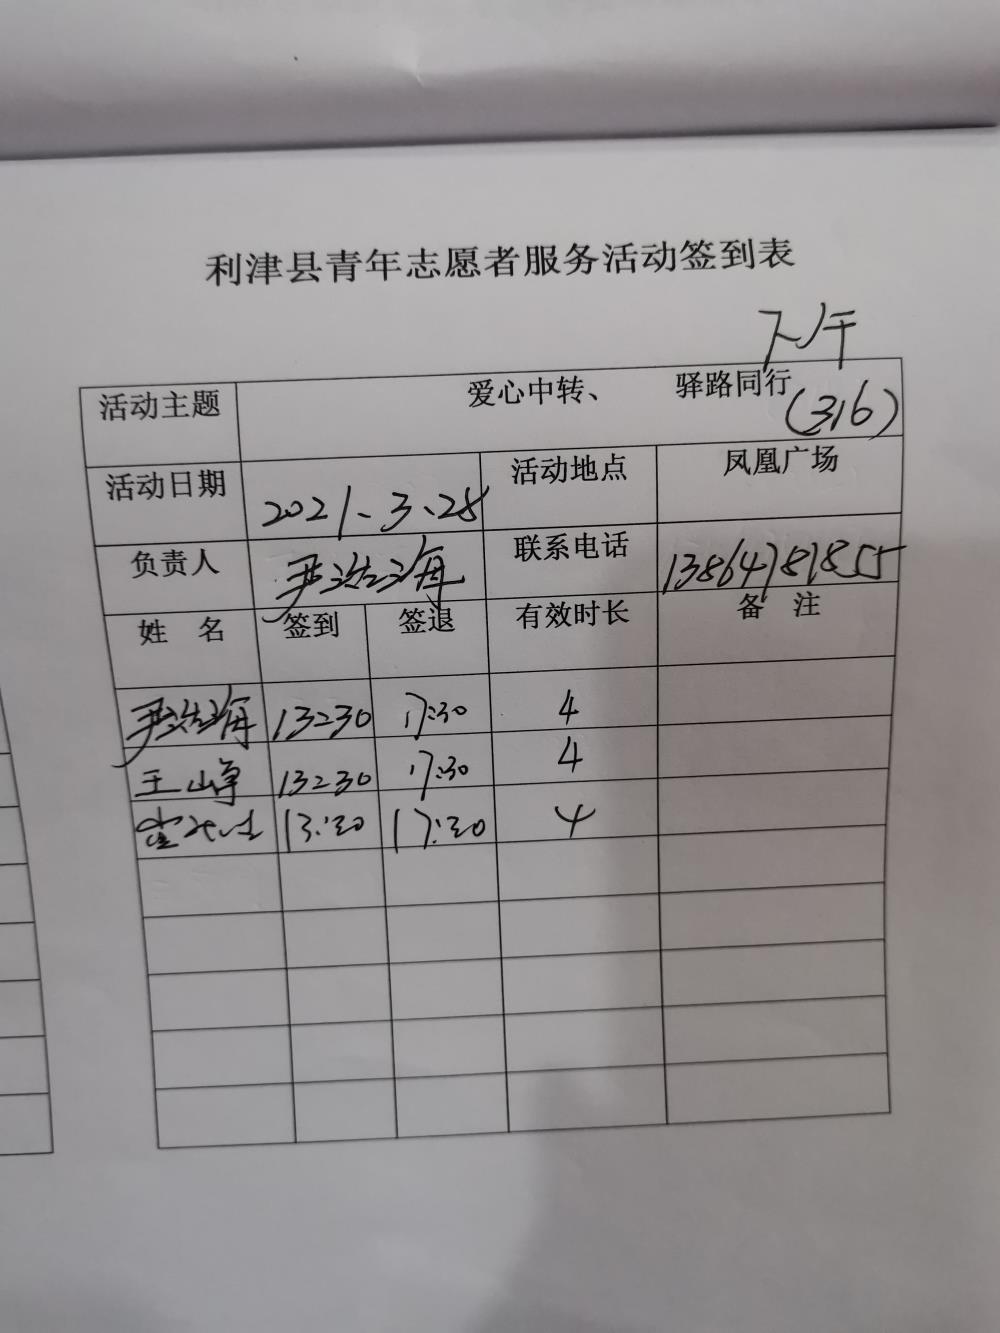 利津县青年志愿者服务活动签到表
下午
活动主题 爱心中转、 驿路同行 (316)
活动日期 2021、3、28 活动地点 凤凰广场
负责人 尹浩海 联系电话 13864781855
姓 名 签到 签退 有效时长 备 注
尹浩海 13:30 17:30 4
王峥 13:30 17:30 4
13:30 17:30 4